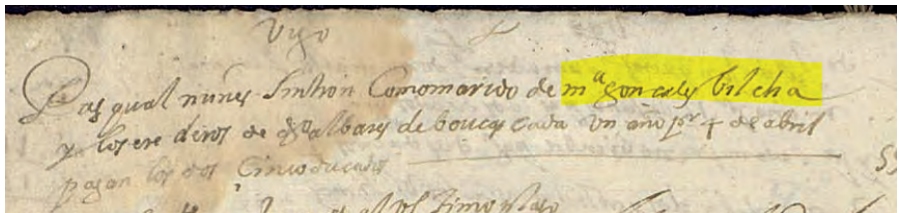 Vigo
Pasqual nuñes Simhon Comomarido de mª gonçales bilcha
y los erederos de gº albares de boucas cada un año pr 4 de abril
pagan los dos Cinco ducados
55